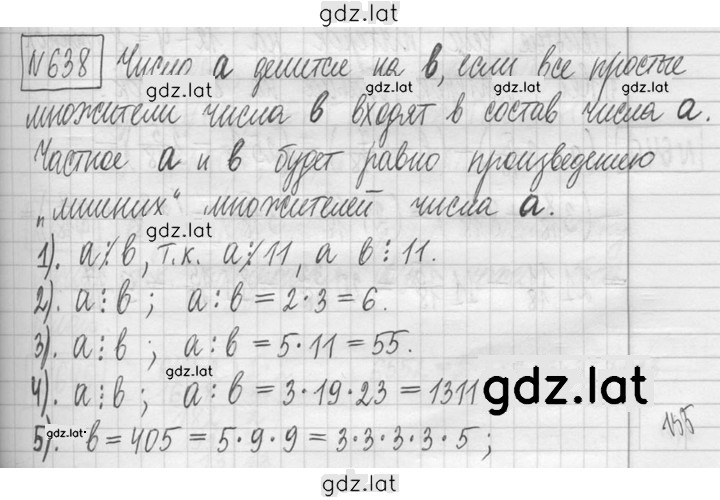 gdz.lat
№638 Число a делится на b, если все простые
gdz.lat gdz.lat gdz.lat
множители числа b входят в состав числа a.
Частное a и b будет равно произведению
„лишних“ множителей числа a.
gdz.lat
1). a⋮̸b, т.к. a⋮̸11, а b⋮11.
2). a⋮b; a:b=2·3=6.
3). a⋮b; a:b=5·11=55.
gdz.lat
4). a⋮b; a:b=3·19·23=1311
gdz.lat
155
gdz.lat
5). b=405=5·9·9=3·3·3·3·5;
gdz.lat